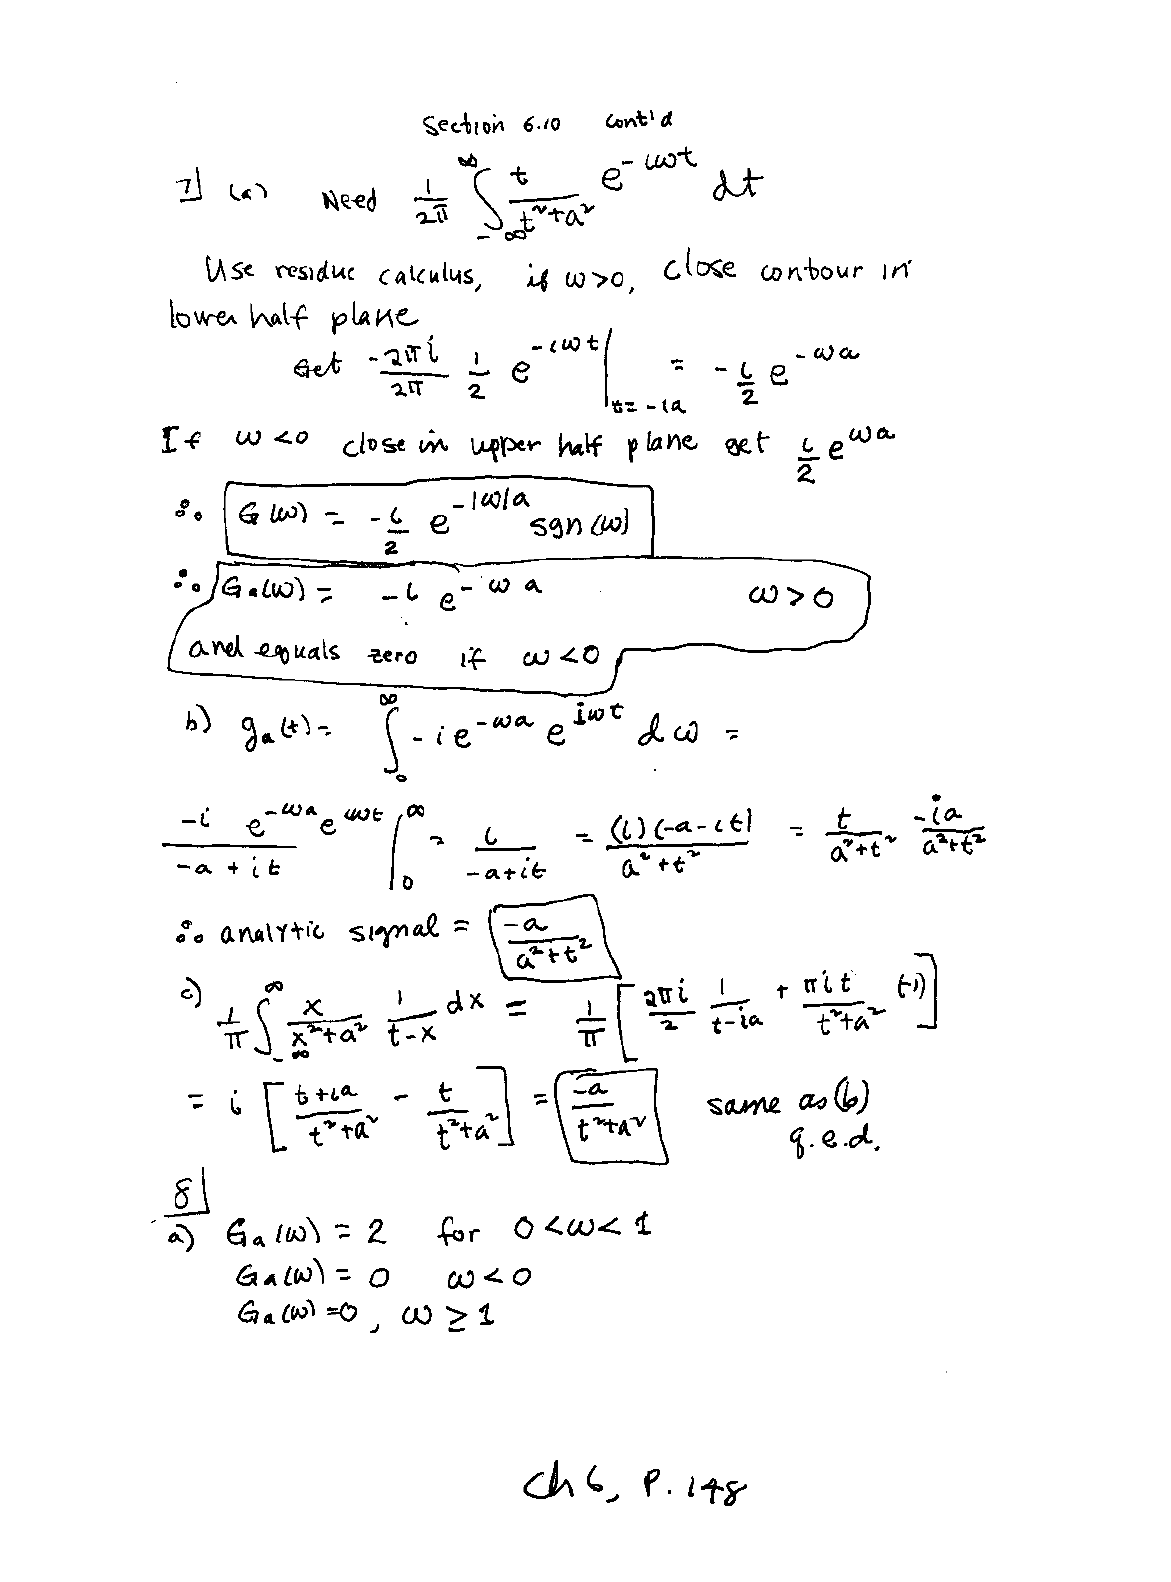 Section 6.10 Cont'd
7] (a) Need 1/2π ∫_{-∞}^{∞} t/(t²+a²) e^{-iωt} dt
Use residue calculus, if ω>0, close contour in
lower half plane
Get -2πi/2π 1/2 e^{-iωt} |_{t=-ia} = -i/2 e^{-ωa}
If ω<0 close in upper half plane get i/2 e^{ωa}
∴ G(ω) = -i/2 e^{-|ω|a} sgn(ω)
∴ Ga(ω) = -i e^{-ωa} ω>0
and equals zero if ω<0
b) ga(t) = ∫_0^∞ -i e^{-ωa} e^{iωt} dω =
-i e^{-ωa} e^{iωt}/(-a+it) |_0^∞ = i/(-a+it) = (i)(-a-it)/(a²+t²) = t/(a²+t²) -ia/(a²+t²)
∴ analytic signal = -a/(a²+t²)
c) 1/π ∫_{-∞}^{∞} x/(x²+a²) 1/(t-x) dx = 1/π [2πi/2 1/(t-ia) + πit/(t²+a²) (-1)]
= i [(t+ia)/(t²+a²) - t/(t²+a²)] = -a/(t²+a²) same as (b)
q.e.d.
8]
a) Ga(ω) = 2 for 0<ω<1
Ga(ω) = 0 ω<0
Ga(ω) =0, ω≥1
Ch 6, P. 148